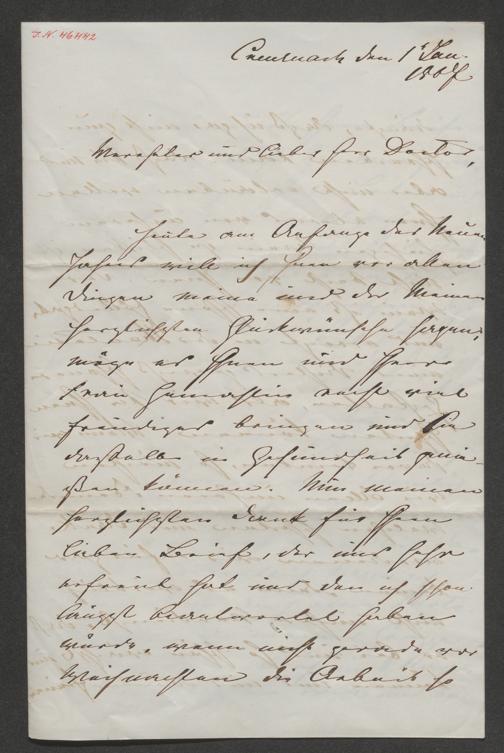 I.N. 46442
Creuznach den 1t Jan.
Verehrter und lieber Herr Doctor,
Heute am Anfange des Neuen
Jahres will ich Ihnen vor allen
Dingen meine und der Meinen
herzlichsten Glückwünsche sagen,
möge es Ihnen und Ihrer
Frau Gemahlin recht viel
freudiges bringen und Sie
dasselbe in Gesundheit genie-
ßen können. Nun meinen
herzlichsten Dank für Ihren
lieben Brief, der uns sehr
erfreut hat und den ich schon
längst beantwortet haben
würde, wenn nicht gerade vor
Weihnachten die Arbeit so